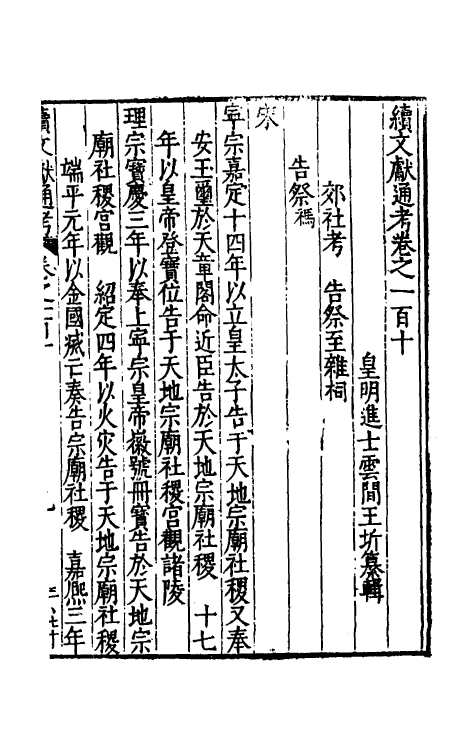 續文獻通考卷之一百十
皇明進士雲間王圻纂輯
郊社考　告祭至雜祠
告祭禡
宋
寧宗嘉定十四年以立皇太子告于天地宗廟社稷又奉
安玉璽於天章閣命近臣告於天地宗廟社稷　十七
年以皇帝登寶位告于天地宗廟社稷宮觀諸陵
理宗寶慶三年以奉上寧宗皇帝徽號冊寶告於天地宗
廟社稷宮觀　紹定四年以火灾告于天地宗廟社稷
端平元年以金國滅亡奏告宗廟社稷　嘉熙三年
續文獻通考　卷之百十